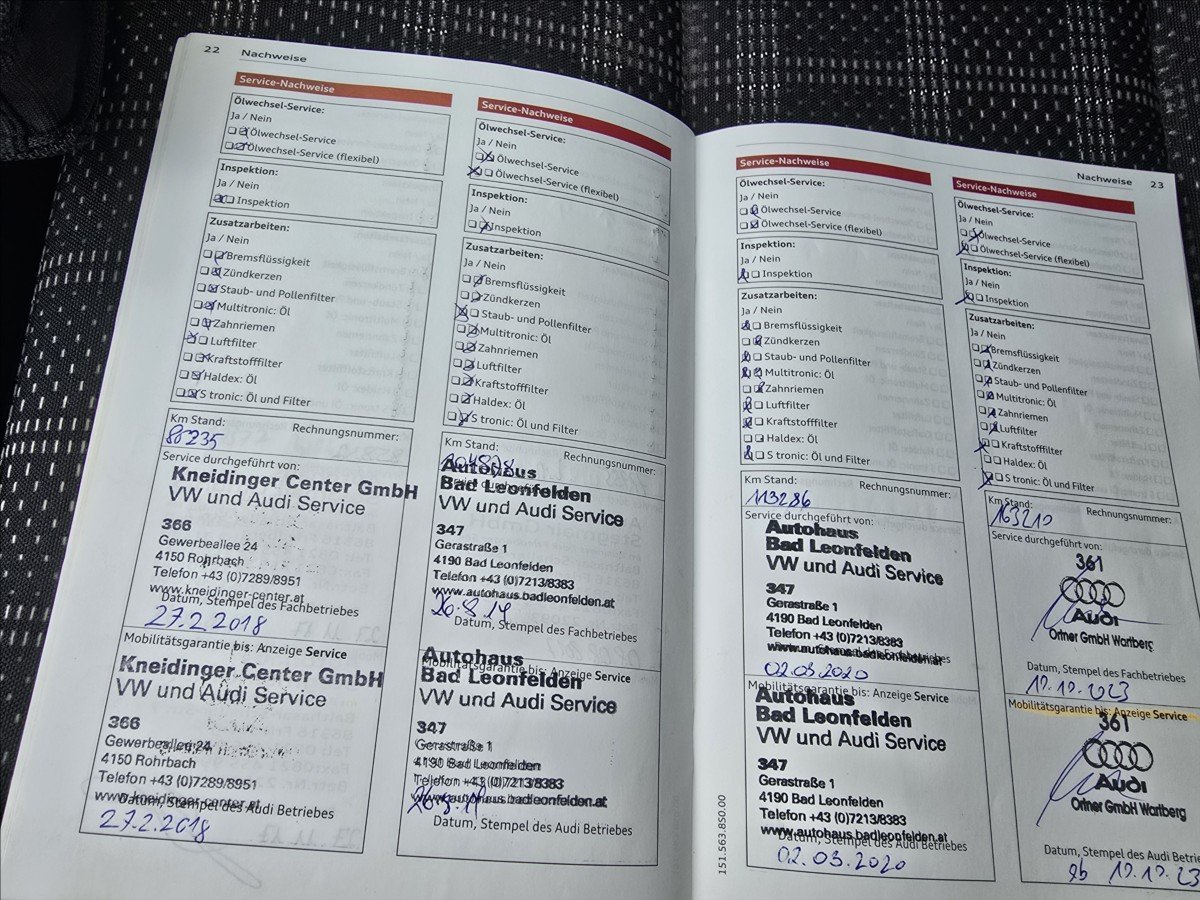 22 Nachweise
Service-Nachweise
Ölwechsel-Service:
Ja / Nein
Ölwechsel-Service
Ölwechsel-Service (flexibel)
Inspektion:
Ja / Nein
Inspektion
Zusatzarbeiten:
Ja / Nein
Bremsflüssigkeit
Zündkerzen
Staub- und Pollenfilter
Multitronic: Öl
Zahnriemen
Luftfilter
Kraftstofffilter
Haldex: Öl
S tronic: Öl und Filter
Km Stand: Rechnungsnummer:
Service durchgeführt von:
Kneidinger Center GmbH
VW und Audi Service
366
Gewerbeallee 24
4150 Rohrbach
Telefon +43 (0)7289/8951
www.kneidinger-center.at
Datum, Stempel des Fachbetriebes
27.2.2018
Mobilitätsgarantie bis: Anzeige Service
Kneidinger Center GmbH
VW und Audi Service
366
Gewerbeallee 24
4150 Rohrbach
Telefon +43 (0)7289/8951
www.kneidinger-center.at
Datum, Stempel des Audi Betriebes
27.2.2018
Service-Nachweise
Ölwechsel-Service:
Ja / Nein
Ölwechsel-Service
Ölwechsel-Service (flexibel)
Inspektion:
Ja / Nein
Inspektion
Zusatzarbeiten:
Ja / Nein
Bremsflüssigkeit
Zündkerzen
Staub- und Pollenfilter
Multitronic: Öl
Zahnriemen
Luftfilter
Kraftstofffilter
Haldex: Öl
S tronic: Öl und Filter
Km Stand: Rechnungsnummer:
Autohaus
Bad Leonfelden
VW und Audi Service
347
Gerastraße 1
4190 Bad Leonfelden
Telefon +43 (0)7213/8383
www.autohaus.badleonfelden.at
Datum, Stempel des Fachbetriebes
26.8.19
Mobilitätsgarantie bis: Anzeige Service
Autohaus
Bad Leonfelden
VW und Audi Service
347
Gerastraße 1
4190 Bad Leonfelden
Telefon +43 (0)7213/8383
www.autohaus.badleonfelden.at
Datum, Stempel des Audi Betriebes
Nachweise 23
Service-Nachweise
Ölwechsel-Service:
Ja / Nein
Ölwechsel-Service
Ölwechsel-Service (flexibel)
Inspektion:
Ja / Nein
Inspektion
Zusatzarbeiten:
Ja / Nein
Bremsflüssigkeit
Zündkerzen
Staub- und Pollenfilter
Multitronic: Öl
Zahnriemen
Luftfilter
Kraftstofffilter
Haldex: Öl
S tronic: Öl und Filter
Km Stand: Rechnungsnummer:
113286
Service durchgeführt von:
Autohaus
Bad Leonfelden
VW und Audi Service
347
Gerastraße 1
4190 Bad Leonfelden
Telefon +43 (0)7213/8383
www.autohaus.badleonfelden.at
02.03.2020
Mobilitätsgarantie bis: Anzeige Service
Autohaus
Bad Leonfelden
VW und Audi Service
347
Gerastraße 1
4190 Bad Leonfelden
Telefon +43 (0)7213/8383
www.autohaus.badleonfelden.at
Datum, Stempel des Audi Betriebes
02.03.2020
151.563.8S0.00
Service-Nachweise
Ölwechsel-Service:
Ja / Nein
Ölwechsel-Service
Ölwechsel-Service (flexibel)
Inspektion:
Ja / Nein
Inspektion
Zusatzarbeiten:
Ja / Nein
Bremsflüssigkeit
Zündkerzen
Staub- und Pollenfilter
Multitronic: Öl
Zahnriemen
Luftfilter
Kraftstofffilter
Haldex: Öl
S tronic: Öl und Filter
Km Stand: Rechnungsnummer:
163210
Service durchgeführt von:
361
Audi
Ortner GmbH Wartberg
Datum, Stempel des Fachbetriebes
Mobilitätsgarantie bis: Anzeige Service
361
Audi
Ortner GmbH Wartberg
Datum, Stempel des Audi Betriebes